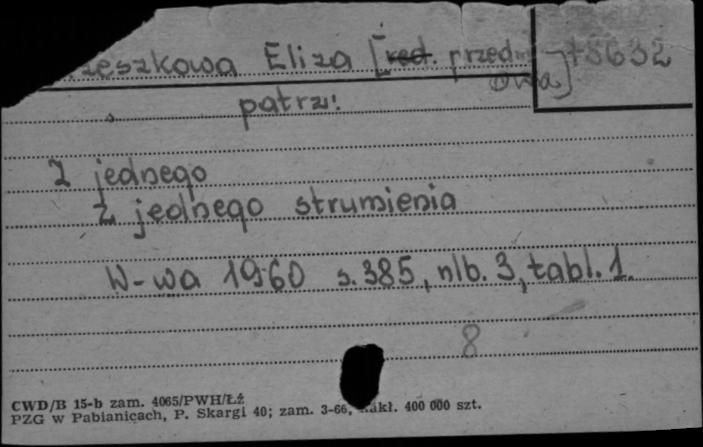 zeszkowa Eliza [red. przedm
owa] 78632
patrz:
Z jednego
Z jednego strumienia
W-wa 1960 s. 385, nlb. 3, tabl. 1.
8
CWD/B 15-b zam. 4065/PWH/Łź
PZG w Pabianicach, P. Skargi 40; zam. 3-66, nakł. 400 000 szt.